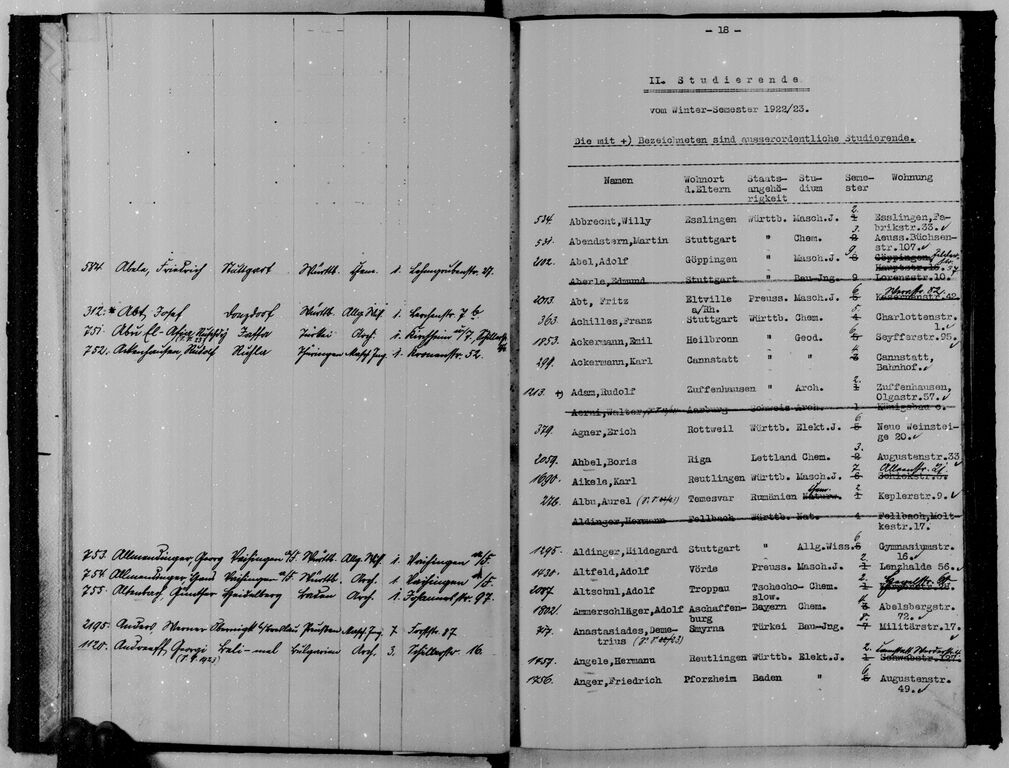 584. Abele, Friedrich Stuttgart Württ. Chem. 1. Lehmgrubenstr. 27.
312. * Abt, Josef Donzdorf Württ. Allg. Wiss. 1. Leoferstr. 7 b
751. Abu El- Jaffa Türkei Arch. 1. Kirchheim a/N.
752. Ackenhausen, Rudolf Ruhla Thüringen Masch. Ing. 1. Kronenstr. 52.
753. Allmendinger, Georg Vaihingen a/F. Württ. Allg. Wiss. 1. Vaihingen a/F.
754. Allmendinger, Hans Vaihingen a/F. Württ. Arch. 1. Vaihingen a/F.
755. Altenbach, Günther Heidelberg Baden Arch. 1. Johannesstr. 97.
2195. Anders, Werner Obernigk b/Breslau Preußen Masch. Ing. 7. Forststr. 87
1120. Andreeff, Georgi Bulgarien Arch. 3. Schillerstr. 16.
- 18 -
II. Studierende
vom Winter-Semester 1922/23.
Die mit +) Bezeichneten sind ausserordentliche Studierende.
Namen Wohnort Staats- Stu- Seme- Wohnung
d.Eltern angehö- dium ster
rigkeit
584. Abbrecht,Willy Esslingen Württb. Masch.J. 2. 1 Esslingen,Fa-
brikstr.33.
531. Abendstern,Martin Stuttgart " Chem. 3. 2 Aeuss.Büchsen-
str.107.
202. Abel,Adolf Göppingen " Masch.J. 9. 8 Göppingen,
Hauptstr.16. 37
Aberle,Edmund Stuttgart " Bau-Ing. 9 Lorenzstr.10.
2013. Abt, Fritz Eltville Preuss. Masch.J. 6 5 Kasernenstr.42.
a/Rh.
363. Achilles,Franz Stuttgart Württb. Chem. 5. 4 Charlottenstr.
1.
1853. Ackermann,Emil Heilbronn " Geod. 6 5 Seyfferstr.95.
298. Ackermann,Karl Cannstatt " " 4 3 Cannstatt,
Bahnhof.
1213. +) Adam,Rudolf Zuffenhausen " Arch. 2. 1 Zuffenhausen,
Olgastr.57.
Aerni,Walter, Aarburg Schweiz Arch. 1 Königsbau 6.
379. Agner,Erich Rottweil Württb. Elekt.J. 6 5 Neue Weinstei-
ge 20.
2059. Ahbel,Boris Riga Lettland Chem. 3. 2 Augustenstr.33
1690. Aikele,Karl Reutlingen Württb. Masch.J. 7. 6 Schickstr.5.
226. Albu,Aurel Temesvar Rumänien Chem. Naturw. 2 1 Keplerstr.9.
Aldinger,Hermann Fellbach Württb. Nat. 4 Fellbach,Molt-
kestr.17.
1295. Aldinger,Hildegard Stuttgart " Allg.Wiss. 6 5 Gymnasiumstr.
16.
1430. Altfeld,Adolf Vörde Preuss. Masch.J. 2 1 Lenzhalde 56.
2007. Altschul,Adolf Troppau Tschecho- Chem. 2. 1
slow.
1802. Ammerschläger,Adolf Aschaffen- Bayern Chem. 4 3 Abelsbergstr.
burg 72.
717. Anastasiades,Deme- Smyrna Türkei Bau-Jng. 8. 7 Militärstr.17.
trius
1757. Angele,Hermann Reutlingen Württb. Elekt.J. 2. 1 Schwabstr.107.
1756. Anger,Friedrich Pforzheim Baden " 6 5 Augustenstr.
49.